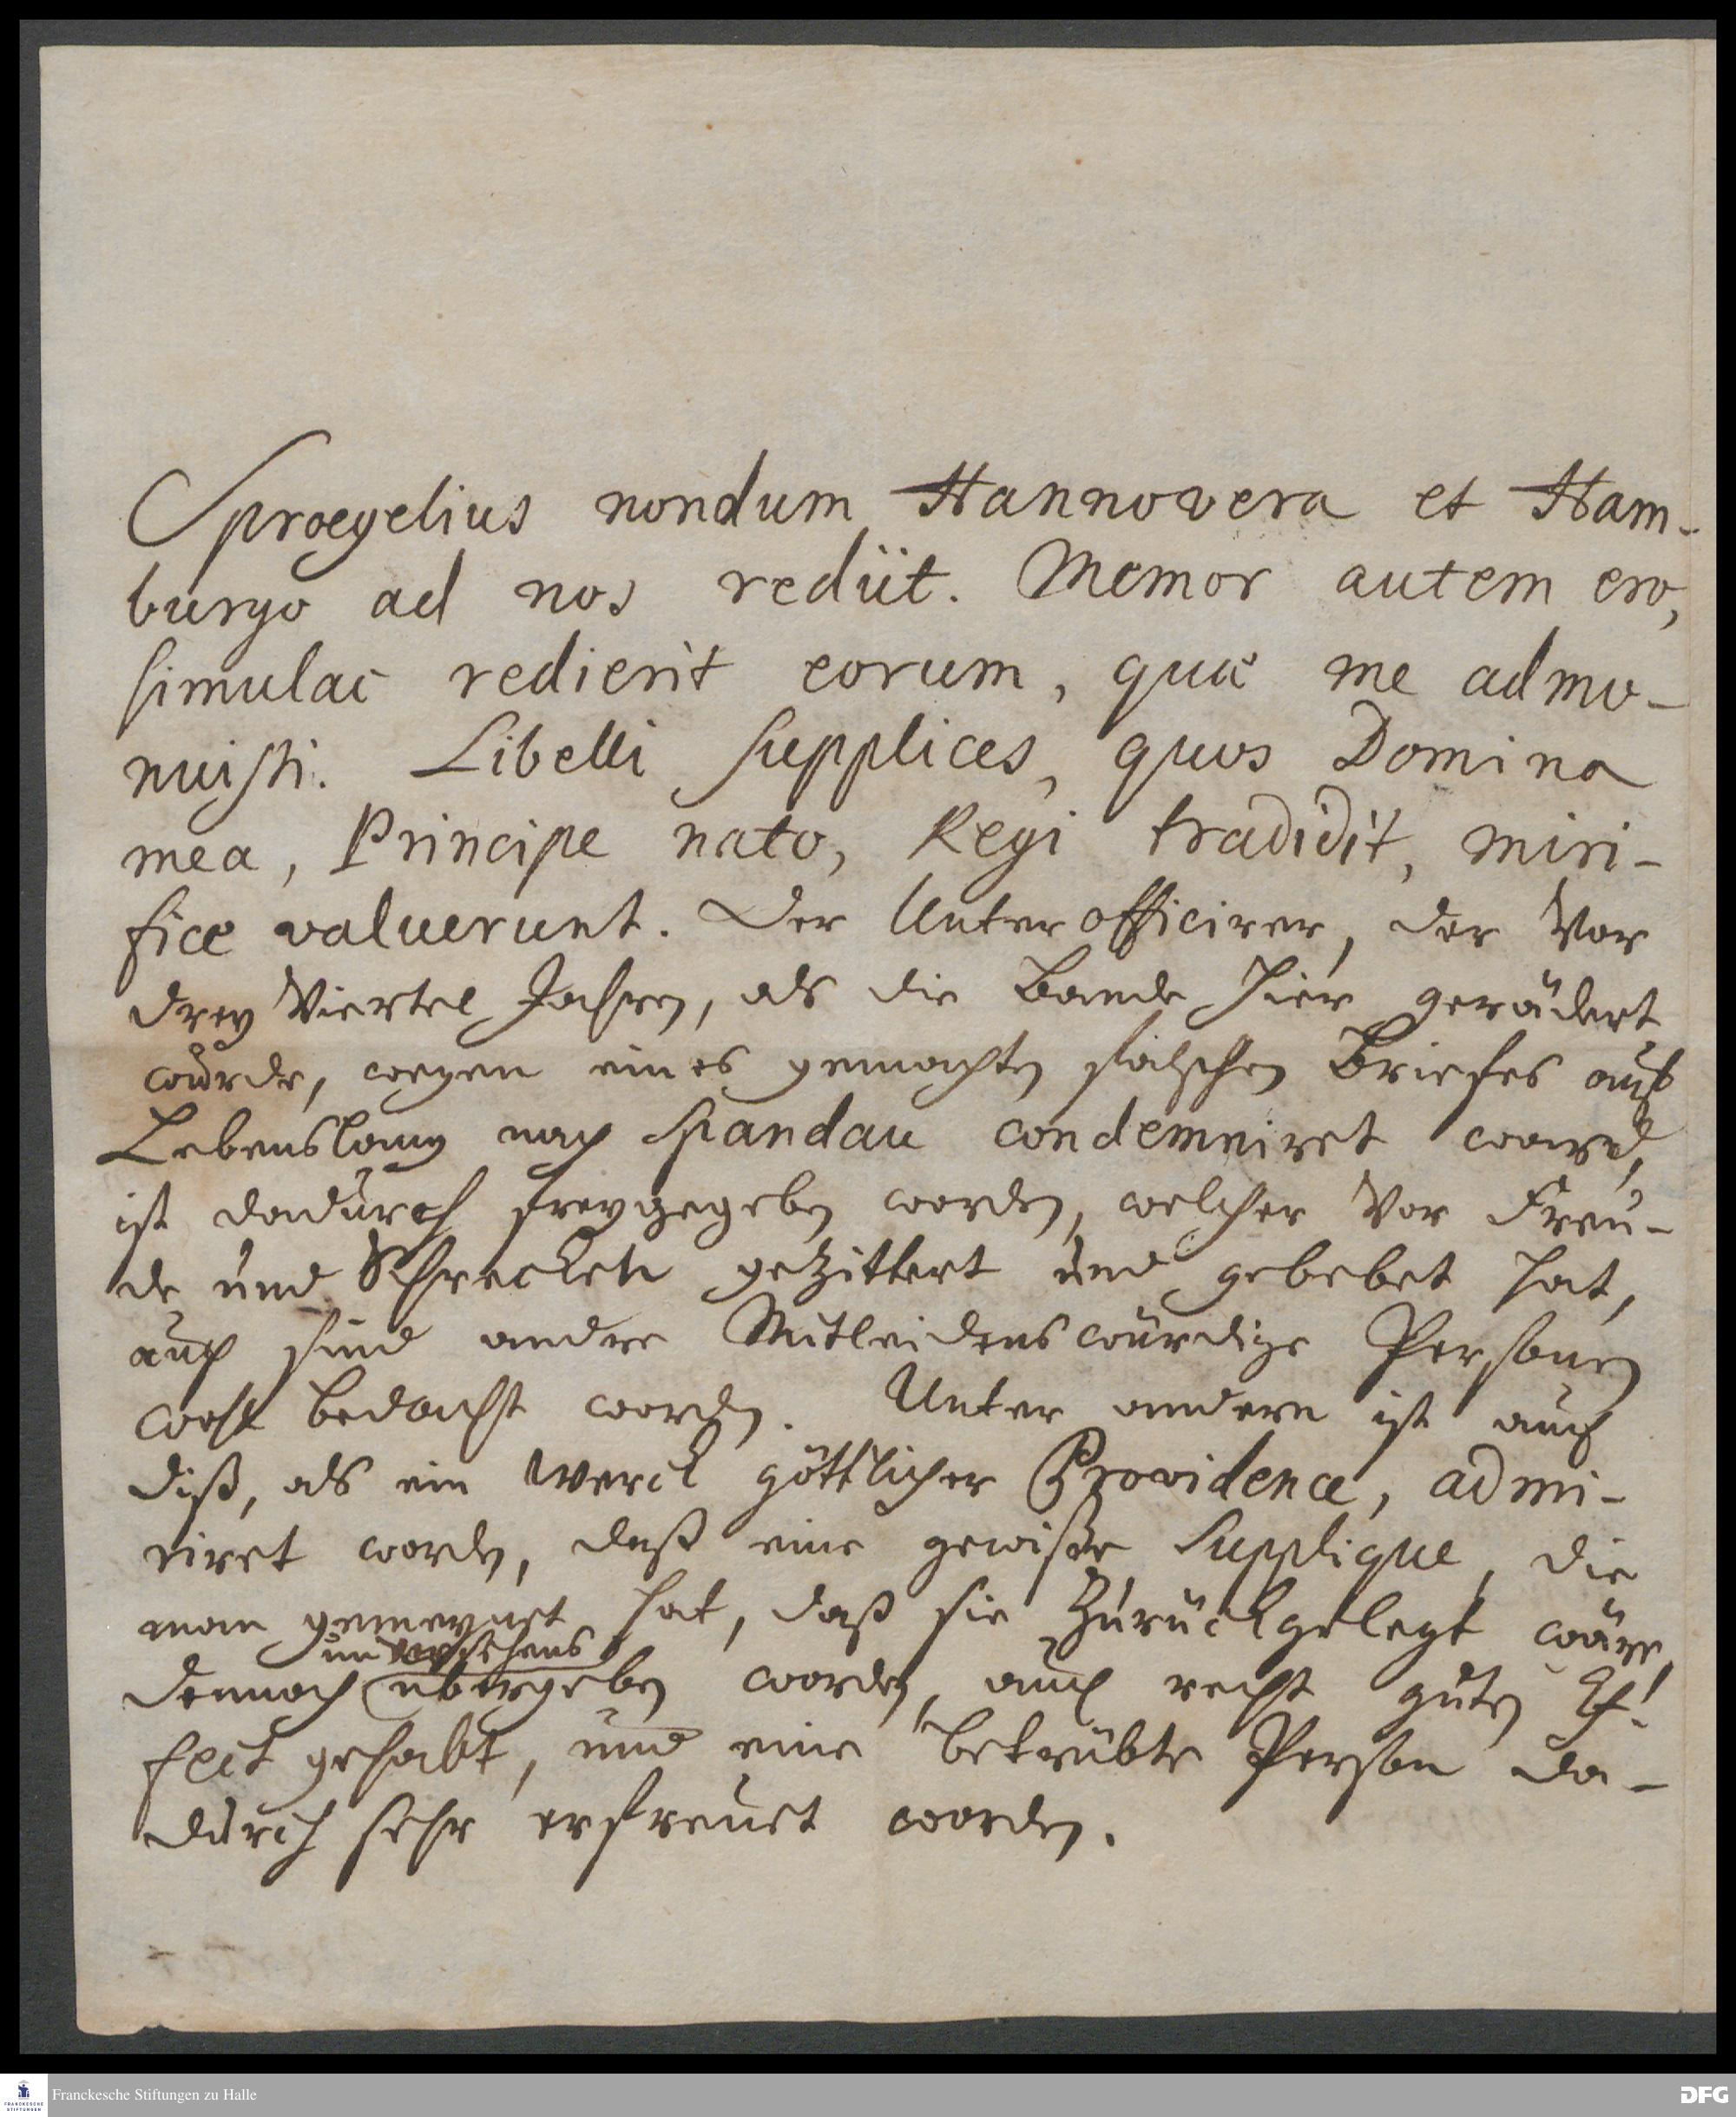 Sproegelius nondum Hannovera et Ham-
burgo ad nos rediit. Memor autem ero,
simulac redierit eorum, quae me admo-
nuisti. Libelli supplices, quos Domina
mea, Principe nato, Regi tradidit, miri-
fice valuerunt. Der Unterofficirer, der vor
drey Viertel Jahren, als die Bande hier gerädert
wurde, wegen eines gemachten falschen Briefes auf
Lebenslang nach Spandau condemniret ward,
ist dadurch freygegeben worden, welcher vor Freu-
de und Schrecken gezittert und gebebet hat,
auch sind andre Mitleidenswürdige Personen
wohl bedacht worden. Unter andern ist auch
diß, als ein Werck göttlicher Providence, admi-
riret worden, daß eine gewiße Supplique, die
man gemeynet hat, daß sie zurückgelegt wäre,
unversehens
dennoch übergeben worden, auch recht guten Ef-
fect gehabt, und eine betrübte Person da-
durch sehr erfreuet worden.
Franckesche Stiftungen zu Halle
FRANCKESCHE
STIFTUNGEN
DFG